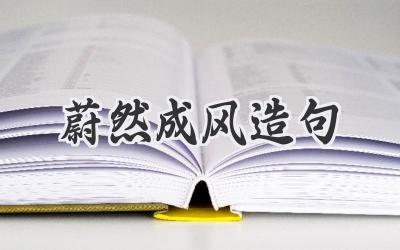 蔚然成风造句